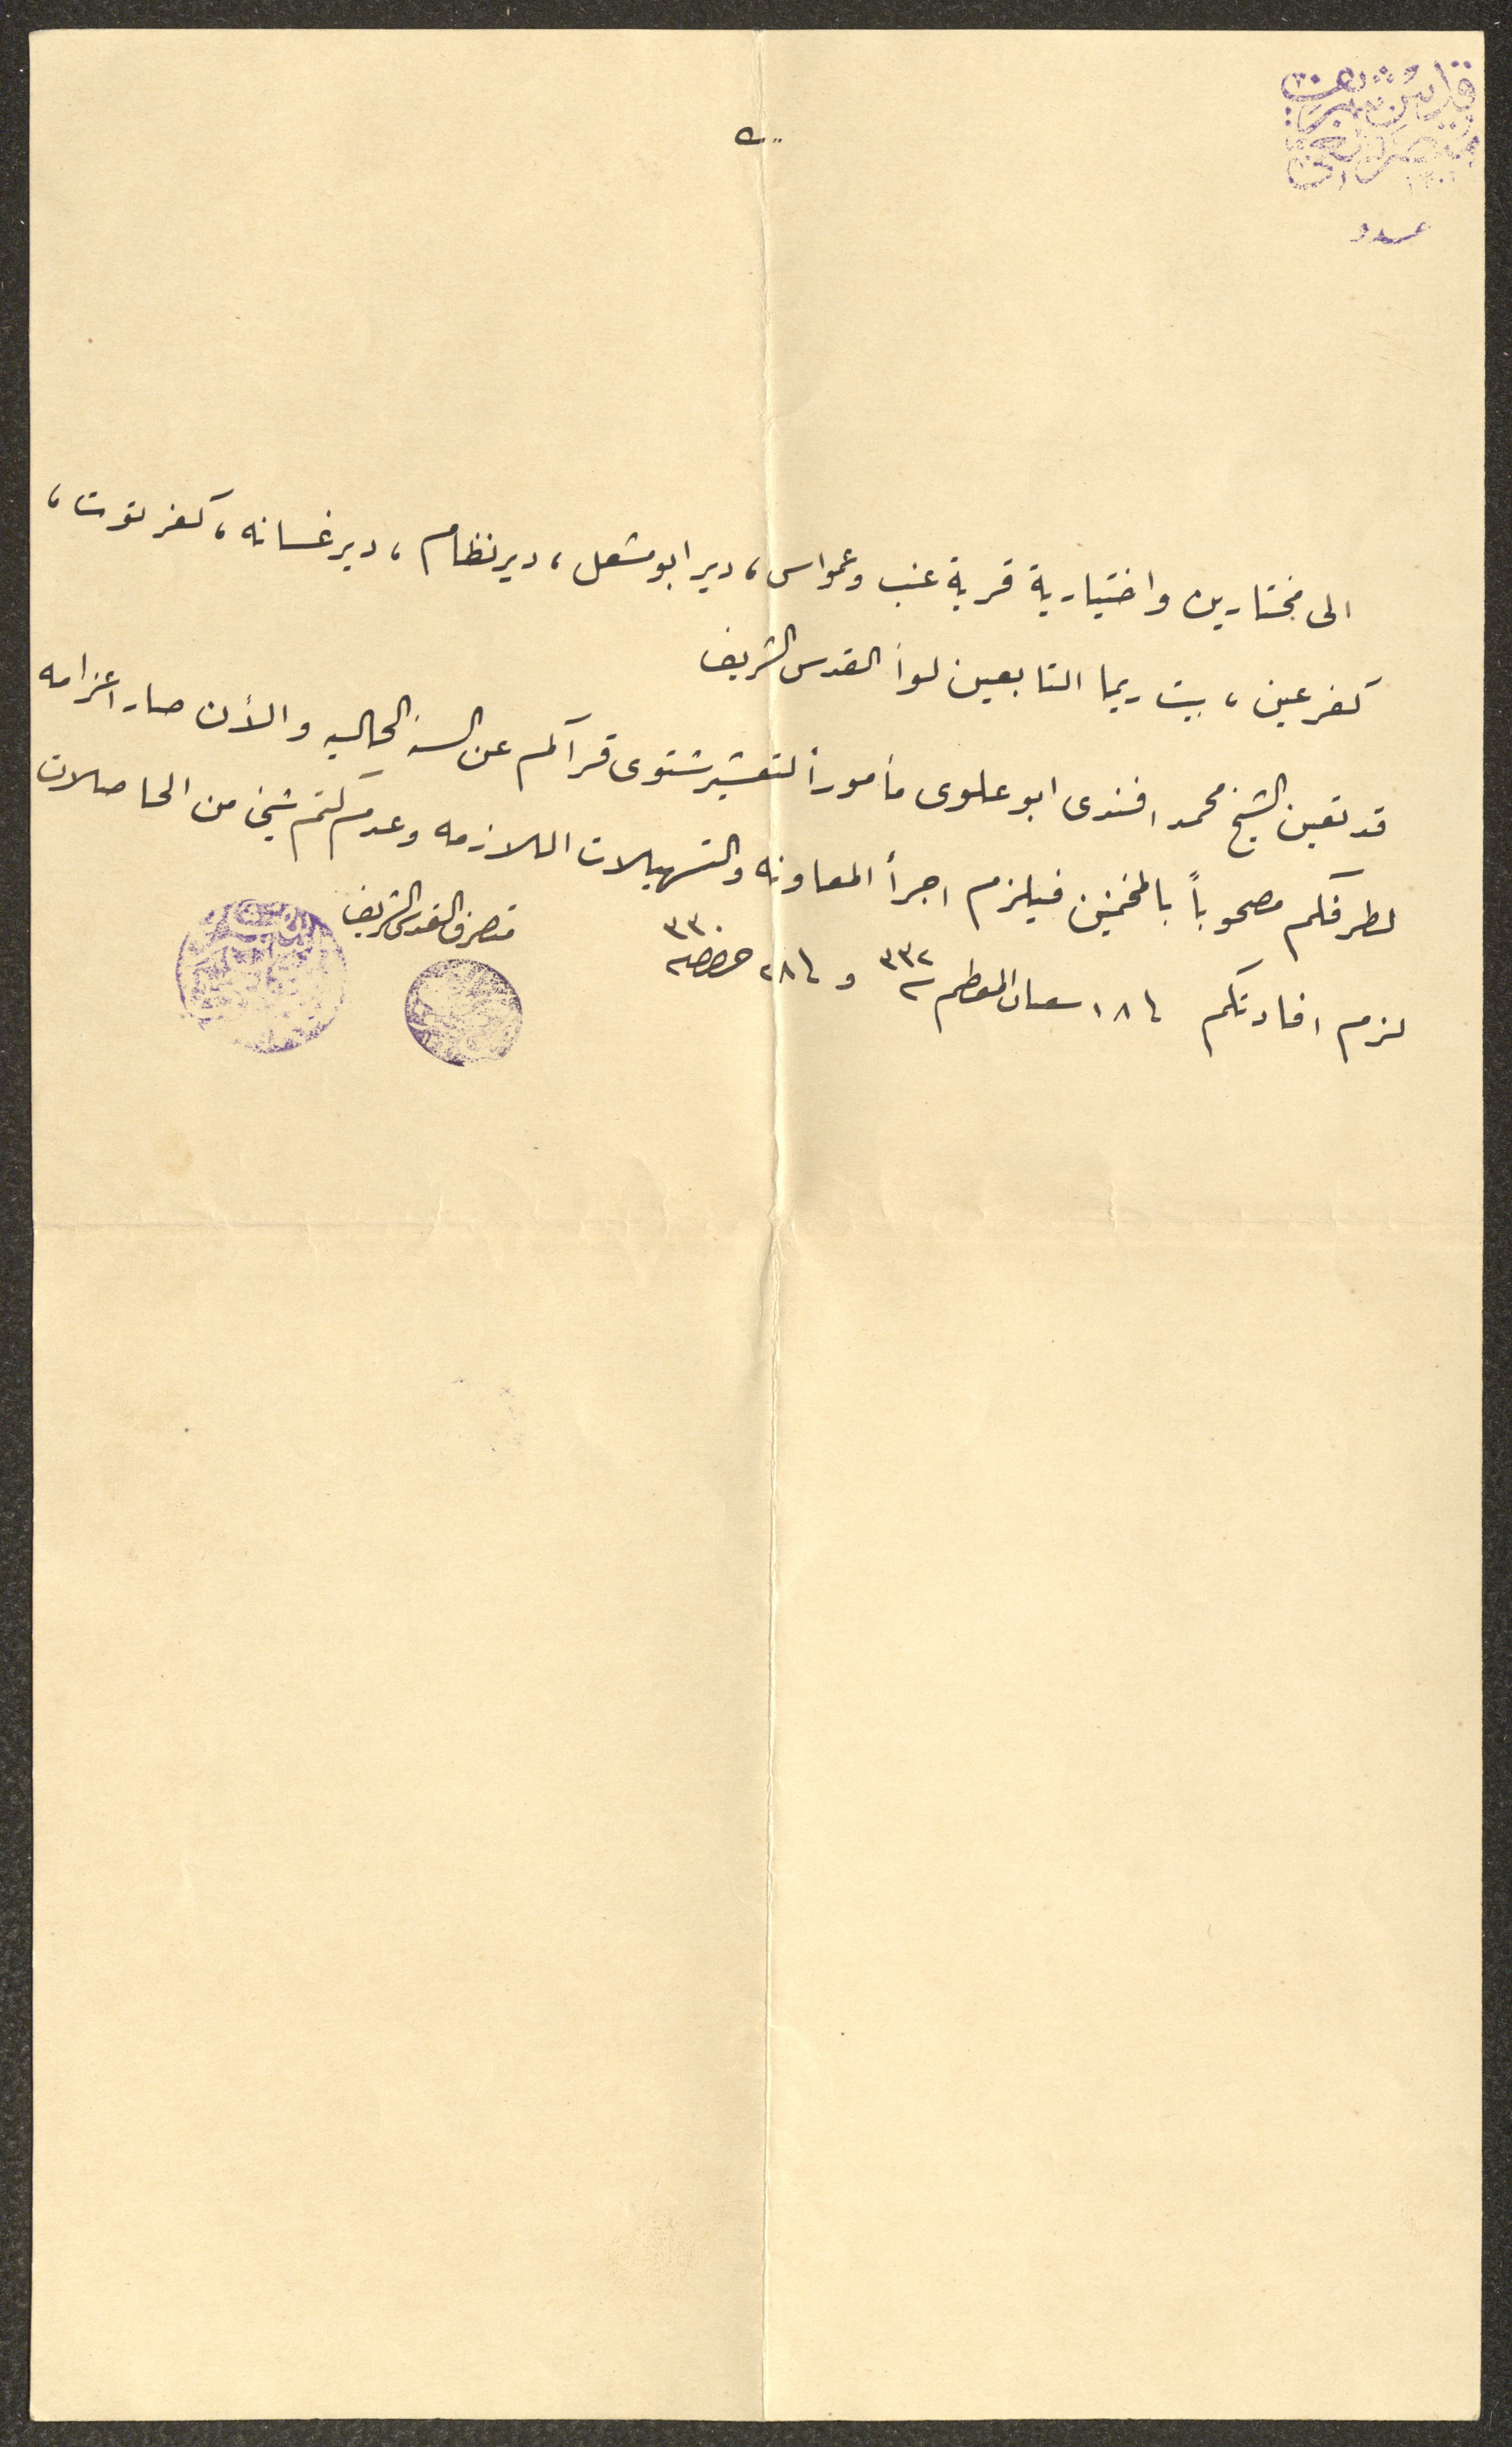 قدس شريف
متصرفلغى
١٣٠١
عدد
الى مختارين واختيارية قرية عنب وعمواس، دير ابو مشعل، دير نظام، دير غسانه، كفر توت،
كفر عين، بيت ريما التابعين لواء القدس الشريف
قد تعين الشيخ محمد افندى ابو علوى مأموراً لتعشير شتوى قراكم عن السنه الحاليه والأن صار اعزامه
لطرفكم مصحوباً بالمخمنين فيلزم اجرأ المعاونه والتسهيلات اللازمه وعدم كتم شيئ من الحاصلات
لزم افادتكم ١٨ شعبان المعظم ٣٣٢ و ٢٨ حزيران ٣٣٠
متصرف القدس الشريف